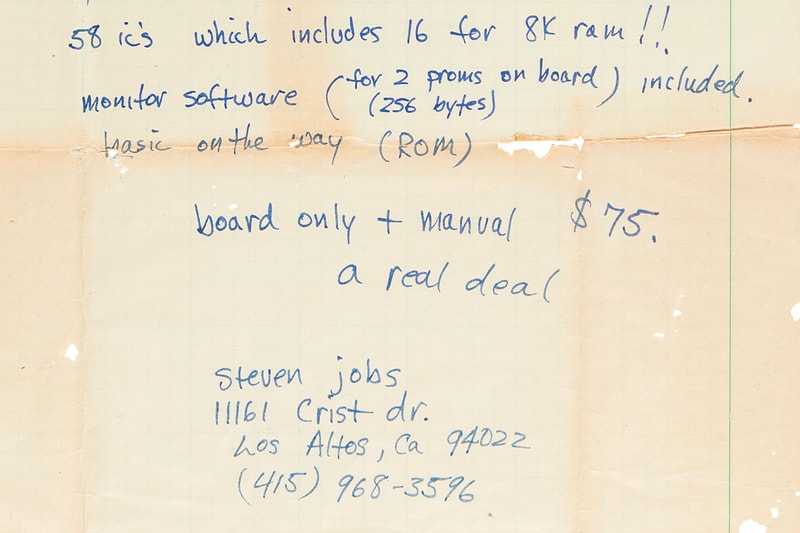 58 ic's which includes 16 for 8K ram!!
monitor software (for 2 proms on board) included.
(256 bytes)
basic on the way (ROM)
board only + manual $75.
a real deal
steven jobs
11161 Crist dr.
Los Altos, Ca 94022
(415) 968-3596